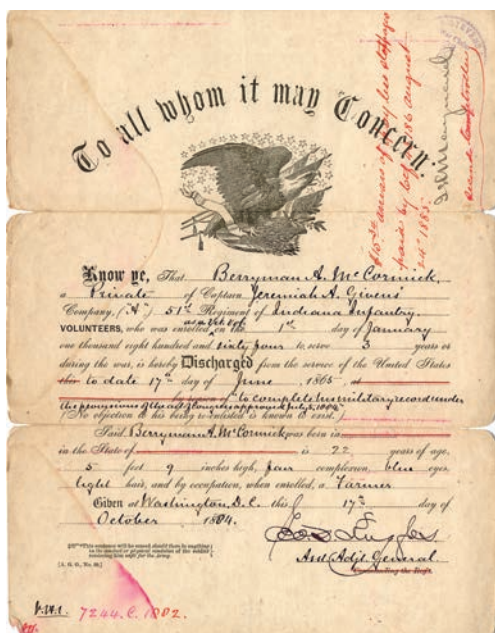 To all whom it may Concern:
paid by
August
1885.
Second Comptroller
Know ye, That Berryman A. McCormick,
a Private of Captain Jeremiah A. Givens'
Company, (A) 51st Regiment of Indiana Infantry
VOLUNTEERS, who was enrolled as a Vet. Vol. on the 1st day of January
one thousand eight hundred and sixty four to serve 3 years or
during the war, is hereby Discharged from the service of the United States
this to date 17th day of June 1865, at
by reason of "to complete his military record under
the provisions of the act of Congress approved July 5, 1884."
(No objection to his being re-enlisted is known to exist.)
Said Berryman A. McCormick was born in
in the State of is 22 years of age,
5 feet 9 inches high, fair complexion, blue eyes,
light hair, and by occupation, when enrolled, a Farmer
Given at Washington, D.C. this 17th day of
October 1884.
Asst Adjt. General.
Commanding the Regt.
[A. G. O., No. 99.]
7244.C.1882.